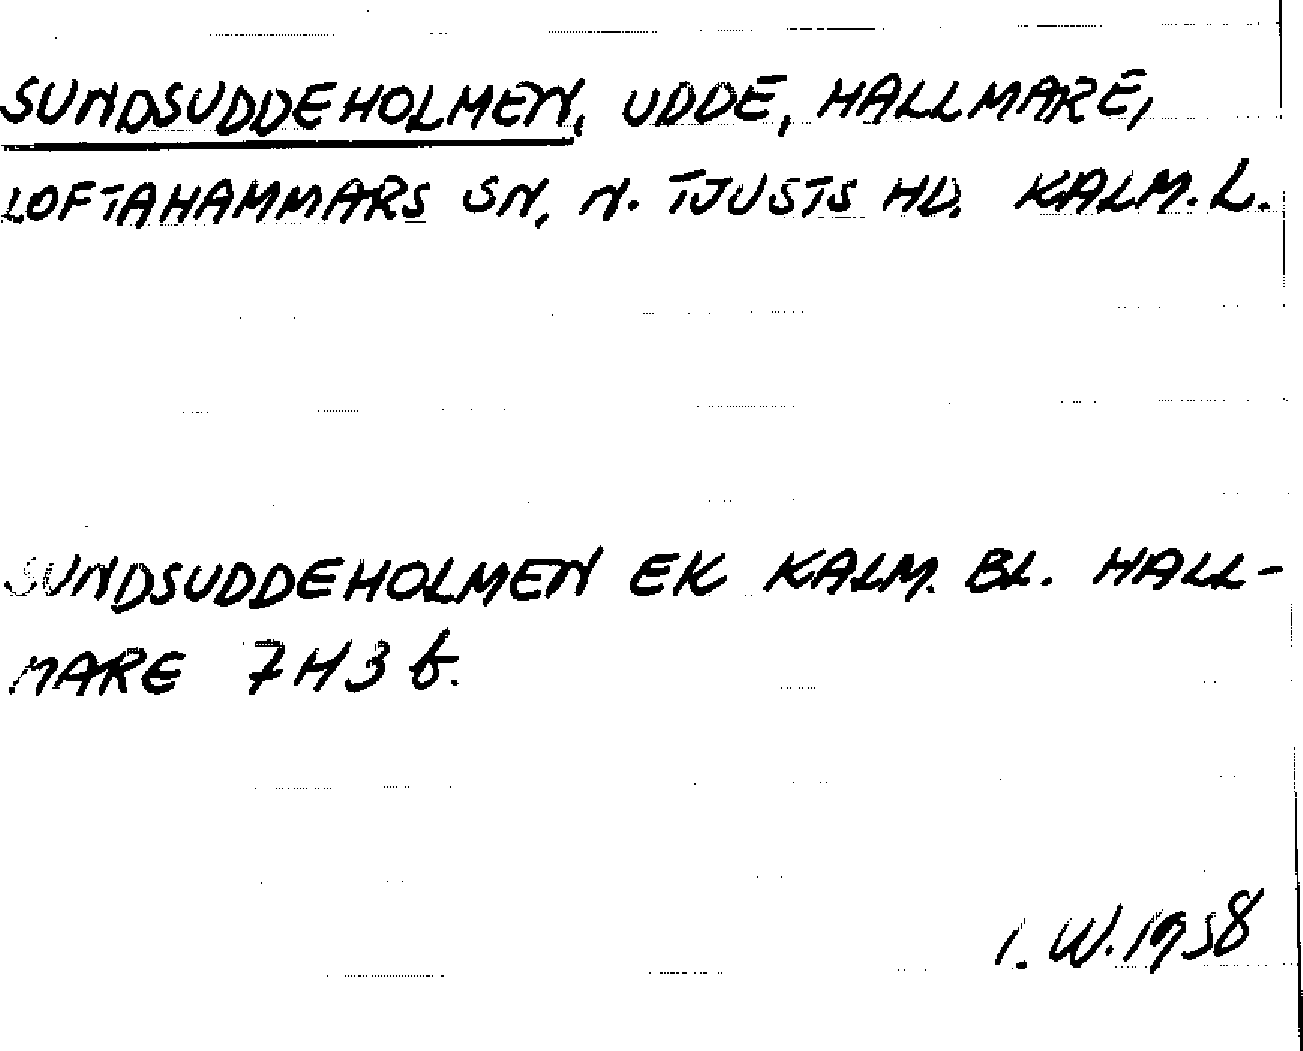 SUNDSUDDEHOLMEN, UDDE, HALLMARE,
LOFTAHAMMARS SN, N. TJUSTS HD. KALM. L.
SUNDSUDDEHOLMEN EK KALM. BL. HALL-
MARE 7H3 b.
I. W. 1958